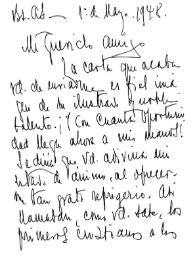 Bs. As. — 1º de Mayo, 1948.
Mi querido amigo
La carta que acaba
vd. de enviarme es fiel ima
gen de su ilustrado y noble
talento. ¡Con cuanta oportuni
dad llega ahora a mis manos!
Se diría que vd. adivina mi
estado de ánimo, al ofrecer
me tan grato refrigerio. Así
llamaban, como vd. sabe, los
primeros cristianos a los